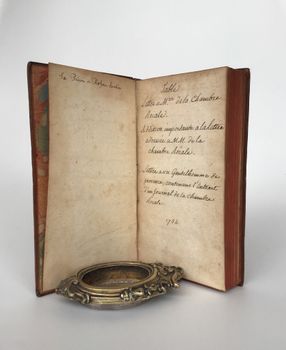 Table
Lettre a Mrs de la Chambre
Royale.
Addition importante a la lettre
adressée a M.M. de la
chambre Royale.
Lettre a un Gentilhomme de
province, contenant l'Extrait
d'un Journal de la chambre
Royale.